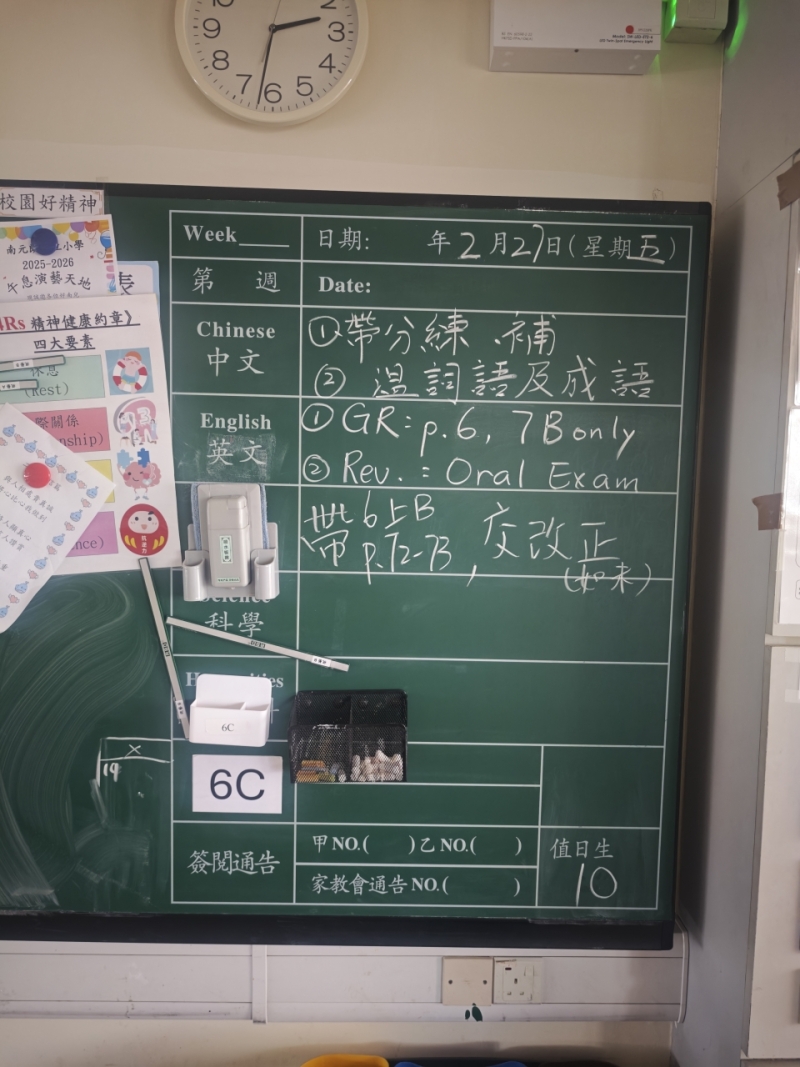 校園好精神
2025-2026
息演藝天地
4Rs 精神健康約章》
四大要素
休息
(Rest)
際關係
nship)
nce)
Week
日期: 年2月27日(星期五)
第 週
Date:
Chinese
中文
①帶分練、補
② 溫詞語及成語
English
英文
① GR: p.6, 7B only
② Rev. : Oral Exam
帶6上B
p.72-73, 交改正
(如未)
Science
科學
6C
6C
簽閱通告
甲NO.( )乙NO.( )
家教會通告NO.( )
值日生
10
X
19
2
3
5
6
7
8
9
10